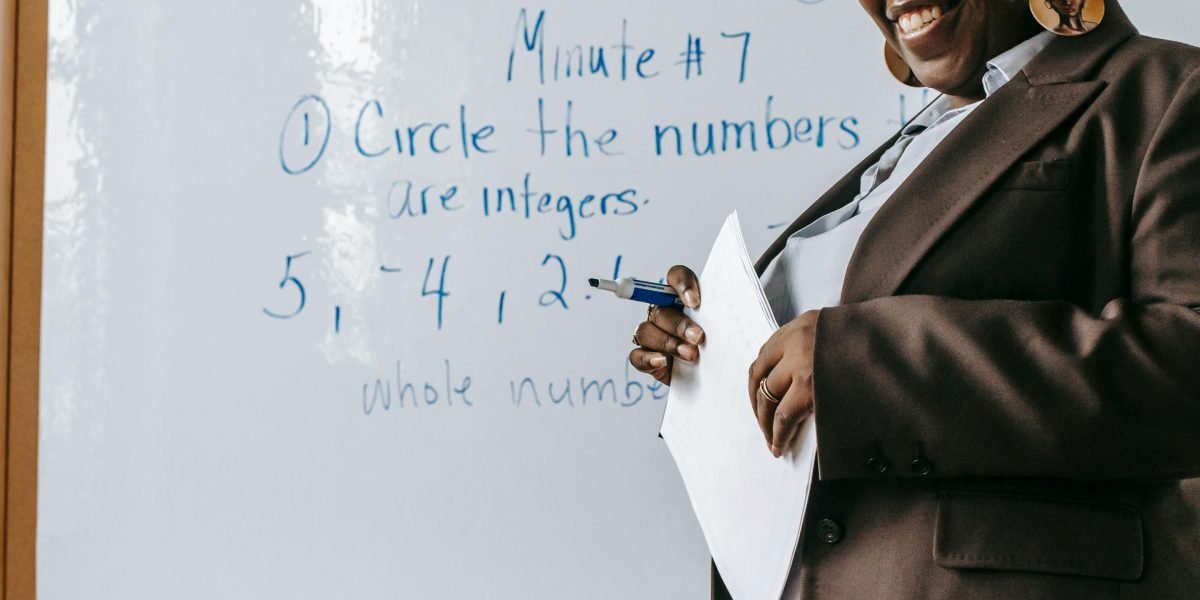 Minute #7
① Circle the numbers
are integers.
5, -4, 2.
whole